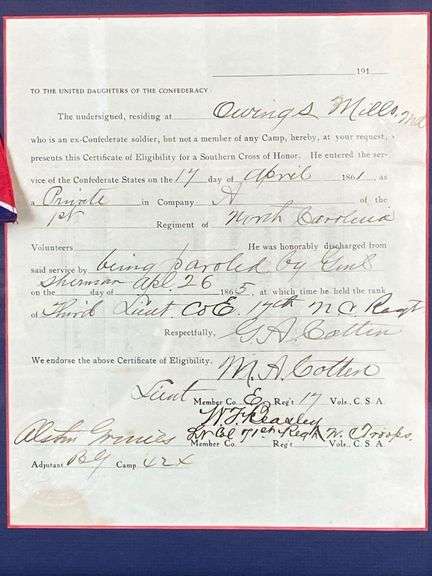 191
TO THE UNITED DAUGHTERS OF THE CONFEDERACY:
The undersigned, residing at Owings Mills, Md
who is an ex-Confederate soldier, but not a member of any Camp, hereby, at your request,
presents this Certificate of Eligibility for a Southern Cross of Honor. He entered the ser-
vice of the Confederate States on the 17 day of April 1861 as
a Private in Company A of the
1st Regiment of North Carolina
Volunteers He was honorably discharged from
said service by being paroled by Genl
Sherman Apl 26
on the day of 1865, at which time he held the rank
of Third Lieut Co E. 17th N C Regt
Respectfully, G. A. Cotten
We endorse the above Certificate of Eligibility. M. A. Cotten
Lieut Member Co. E, Reg't 17 Vols., C. S. A.
W. F. Beasley
Lt Col 71st Regt N. C Troops.
Member Co. Reg't Vols., C. S. A.
Adjutant Camp